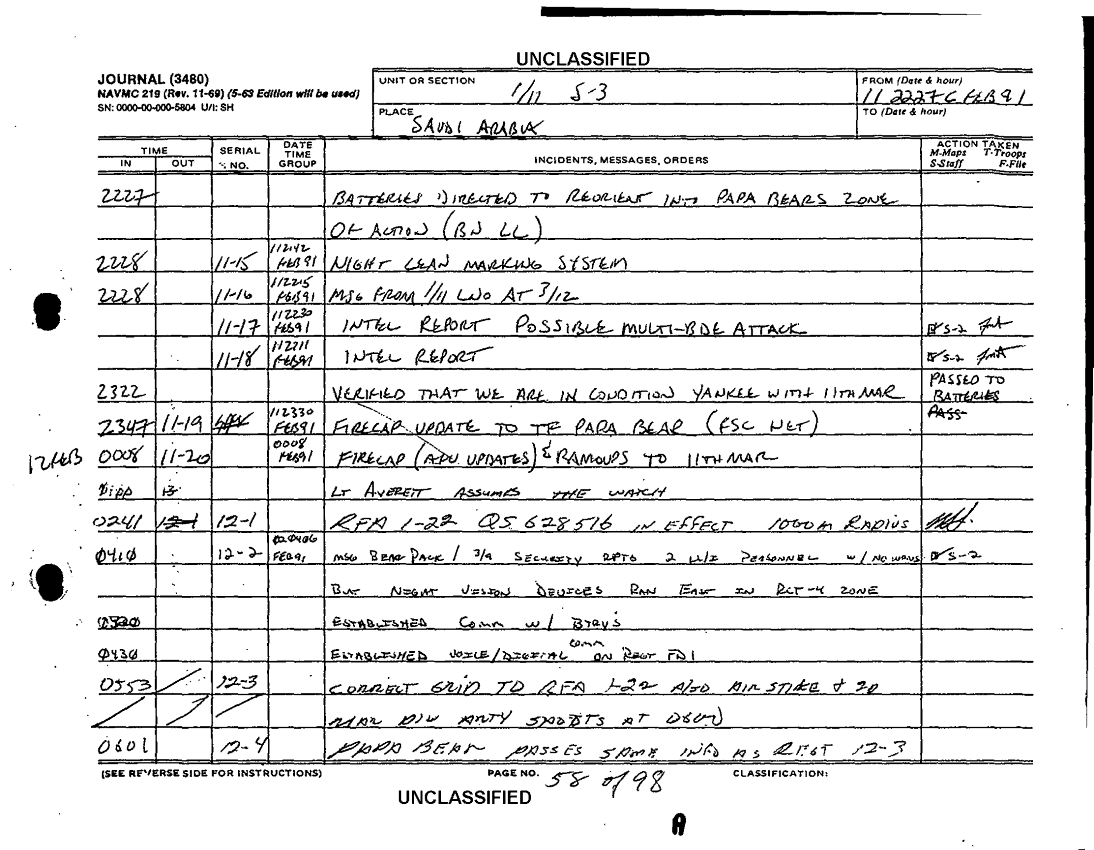 UNCLASSIFIED
JOURNAL (3480)
NAVMC 219 (Rev. 11-69) (5-63 Edition will be used)
SN: 0000-00-000-5804 U/I: SH
UNIT OR SECTION
1/11 S-3
FROM (Date & hour)
11 2227C FEB 91
PLACE
SAUDI ARABIA
TO (Date & hour)
TIME
IN OUT
SERIAL NO.
DATE TIME GROUP
INCIDENTS, MESSAGES, ORDERS
ACTION TAKEN
M-Maps T-Troops
S-Staff F-File
2227 BATTERIES DIRECTED TO REORIENT INTO PAPA BEARS ZONE
OF ACTION (BN LL)
2228 11-15 112142 FEB 91 NIGHT LEAN MARKING SYSTEM
2228 11-16 112215 FEB 91 MSG FROM 1/11 LNO AT 3/12
11-17 112230 FEB 91 INTEL REPORT POSSIBLE MULTI-BDE ATTACK S-2
11-18 112211 FEB 91 INTEL REPORT S-2
2322 VERIFIED THAT WE ARE IN CONDITION YANKEE WITH 11TH MAR PASSED TO BATTERIES
2347 11-19 112330 FEB 91 FIRECAP UPDATE TO TF PAPA BEAR (FSC NET) PASS
12 FEB 0008 11-20 0008 FEB 91 FIRECAP (ADV UPDATES) & RAMOUPS TO 11TH MAR
LT AVERETT ASSUMES THE WATCH
0241 12-1 12-1 RFA 1-22 QS 628516 IN EFFECT 1000m RADIUS
0410 12-2 FEB 91 MSG BEAR PACK / 3/9 SECURITY RPTS 2 U/I PERSONNEL W/ NO WPNS S-2
BUT NIGHT VISION DEVICES RAN EAST IN RCT-4 ZONE
0320 ESTABLISHED COMM W/ BTRYS
0430 ESTABLISHED VOICE/DIGITAL COMM ON REGT FD1
0553 12-3 CORRECT GRID TO RFA 1-22 ALSO AIR STIKE & 20
MAR DIV ARTY SHOOTS AT 0600
0601 12-4 PAPA BEAR PASSES SAME INFO AS REGT 12-3
(SEE REVERSE SIDE FOR INSTRUCTIONS)
PAGE NO. 58 of 98
CLASSIFICATION:
UNCLASSIFIED
A